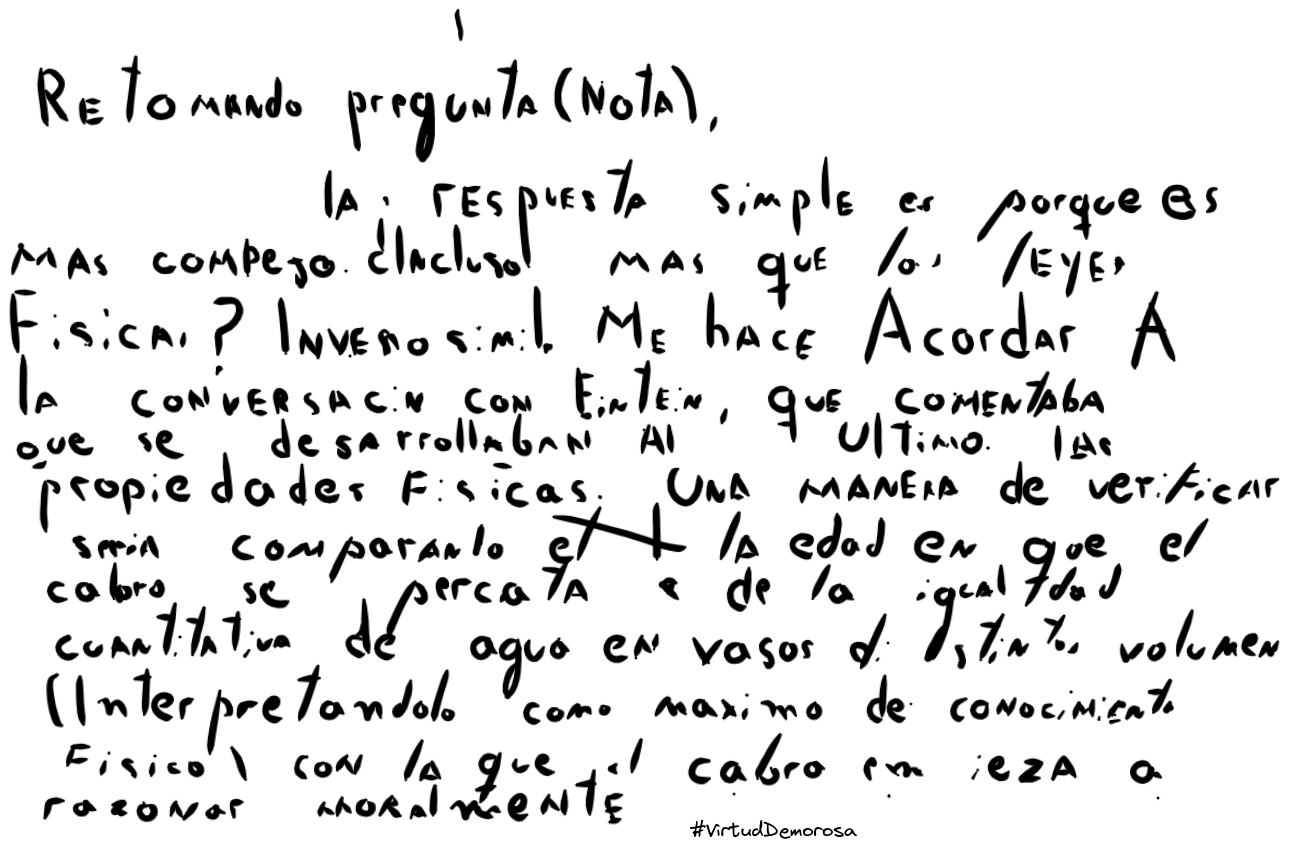 Retomando pregunta (Nota),
la respuesta simple es porque es
mas compejo. ¿Incluso mas que las leyes
Fisicas? Inverosimil. Me hace Acordar A
la conversacin con Eintein, que comentaba
que se desarrollaban Al ultimo las
propiedades Fisicas. Una manera de verificar
seria comparanlo el la edad en que el
cabro se percata de la igcaltdad
cuantitativa de agua en vasos distintos volumen
(Interpretandolo como maximo de conocimiento
Fisico) con la que el cabro empieza a
razonar moralmente
#VirtudDemorosa